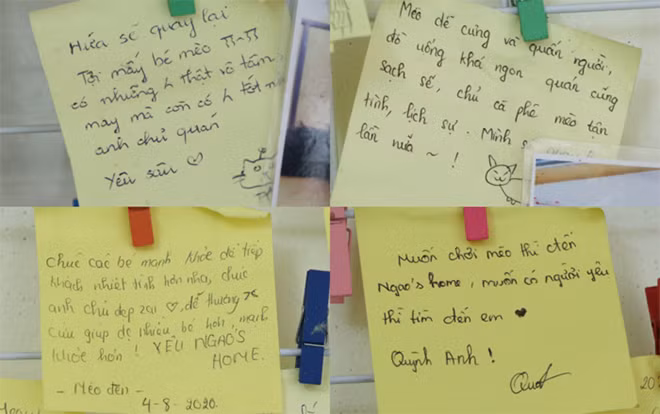 Hứa sẽ quay lại
Tội mấy bé mèo TT-TT
có những h thật vô tâm,
may mà còn có h tốt n
anh chủ quán
Yêu sâu ♡
Mèo dễ cưng và quấn người,
đồ uống khá ngon quán cũng
sạch sẽ, chủ cà phê mèo tận
tình, lịch sự. Mình s
lần nữa ~ !
Chúc các bé mạnh khỏe để tiếp
khách nhiệt tình hơn nha, chúc
anh chủ đẹp zai ♡, dễ thương
cưu giúp đc nhiều bé hơn, mạnh
khỏe hơn! YÊU NGAO'S
HOME.
- Mèo đen -
4-8-2020.
Muốn chơi mèo thì đến
Ngao's home, muốn có người yêu
thì tìm đến em ♥
Quỳnh Anh!
20